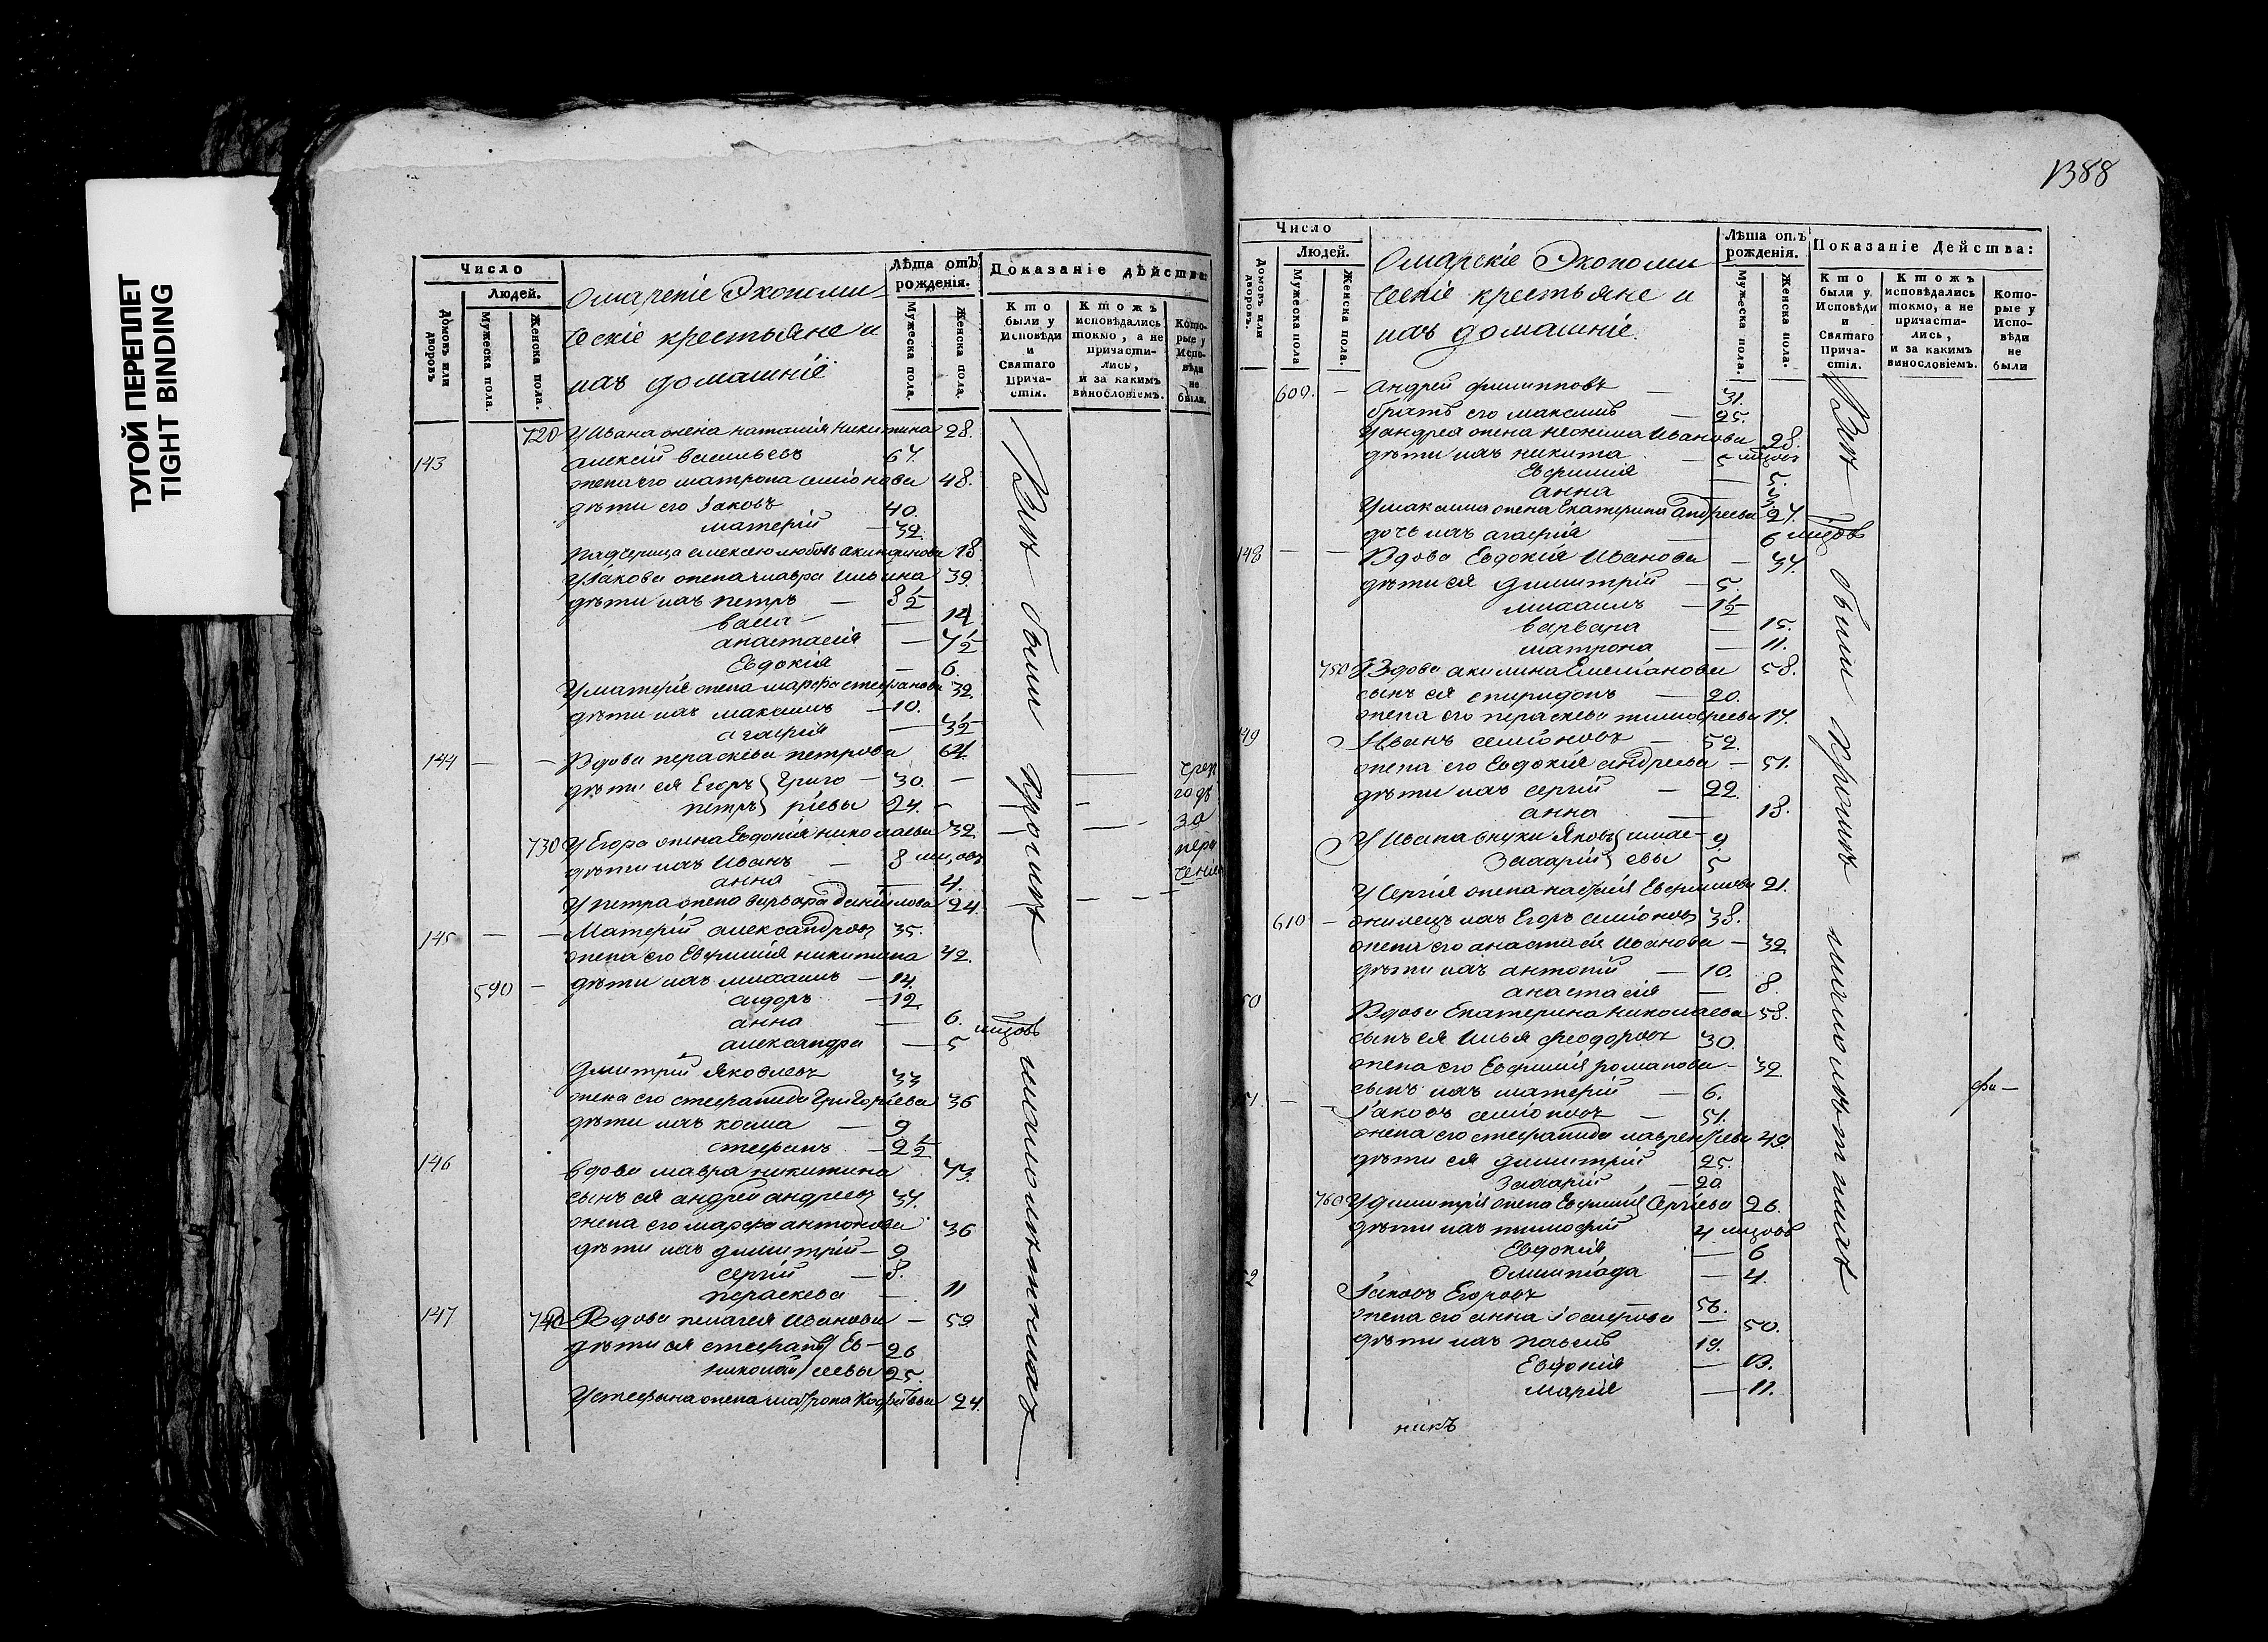 ТУГОЙ ПЕРЕПЛЕТ
TIGHT BINDING
Число
Людей.
Домовъ или дворовъ
Мужеска пола.
Женска пола.
Экономи-
ческіе крестьяне и
ихъ домашніе
Лѣта отъ рожденія.
Мужеска пола.
Женска пола.
Показаніе дѣйства:
Кто были у Исповѣди и Святаго Прича-стія.
Ктожъ исповѣдались токмо, а не причасти-лись, и за какимъ винословіемъ.
Кото-рые у Испо-вѣди не были.
720 У Ивана жена наталія никитина 28.
143 алексій васильевъ 67.
жена его матрона симіонова 48.
дѣти его Іаковъ 40.
матѳій — 32
падчерица алексею любовь 18
У Іакова жена мавра ильина 39.
дѣти ихъ петръ — 8½
васса — 14
анастасія — 7½
Евдокія — 6.
У матѳія жена марѳа стефанова 32
дѣти ихъ максимъ — 10.
агафія — 3½
144 — — Вдова параскева петрова 64
дѣти ея Егоръ} Григо- 30. —
петръ} ріевы 24. —
730 У Егора жена Евдокія николаева 32
дѣти ихъ Иванъ — 8 мцовъ
анна — 4.
У петра жена варвара даніилова 24.
145 — — Матѳій александровъ 35.
жена его Евфимія никитина 42.
590 — дѣти ихъ михаилъ — 14.
сидоръ — 12
анна — 6.
александра — 5 мцовъ
Димитрій Яковлевъ 33
жена его стефанида Григоріева 36
дѣти ихъ косма — 9
стефанъ — 2½
146 вдова мавра никитина 73.
сынъ ея андрей андреевъ 37.
жена его марѳа антонова 36
дѣти ихъ димитрій — 9
сергій — 8.
параскева — 11
147 740 Вдова пелагея Иванова — 59
дѣти ея стефанъ} Ев- 26
николай} сеевы 25.
У стефана жена матрона 24.
Всѣ были кромѣ малолѣтныхъ
1388
Число
Людей.
Домовъ или дворовъ.
Мужеска пола
Женска пола.
Экономи
ческіе крестьяне и
ихъ домашніе.
Лѣта отъ рожденія.
Мужеска пола.
Женска пола.
Показаніе Действа:
Кто были у Исповѣди и Святаго Прича-стія.
Ктожъ исповѣдались токмо, а не причасти-лись, и за какимъ винословіемъ.
Кото-рые у Испо-вѣди не были
600. — андрей филипповъ — 31.
братъ его максимъ — 25.
У андрея жена неонила Иванова 28.
дѣти ихъ никита — 5 мцовъ
Евфимія — 5.
анна — 3.
У максима жена Екатерина андреева 27.
дочь ихъ агафія — 6 мцовъ
148 — — Вдова Евдокія Иванова — 37.
дѣти ея димитрій — 5.
михаилъ — 1½
варвара — 15.
матрона — 11.
750 Вдова акилина Емеліанова 58.
сынъ ея спиридонъ — 20.
жена его параскева тимофеева 17.
49 Иванъ симіоновъ — 52.
жена его Евдокія андреева — 51.
дѣти ихъ сергій — 22.
анна — 18.
У Ивана внуки Яковъ} 9.
Захарій} 5
У Сергія жена Евфимиева 21.
610 — Егоръ симіоновъ 38.
жена его анастасія Иванова — 32
дѣти ихъ антоній — 10.
анастасія — 8.
50 Вдова Екатерина николаева 58.
сынъ ея Илья феодоровъ 30.
жена его Евфимія романова — 32
сынъ ихъ матѳій — 6.
51 — — Іаковъ симіоновъ — 51.
жена его стефанида лаврентіева 49.
дѣти ея димитрій 25.
Захарій — 20
760 У димитрія жена Евфимія Сергіева 26.
дѣти ихъ тимофій 4 мцовъ
Евдокія — 6
Олимпіада — 4.
52 Іаковъ Егоровъ 56.
жена его анна Іосифова — 50.
дѣти ихъ павелъ 19.
Евдокія — 13.
марія — 11.
никъ
Всѣ были кромѣ малолѣтныхъ